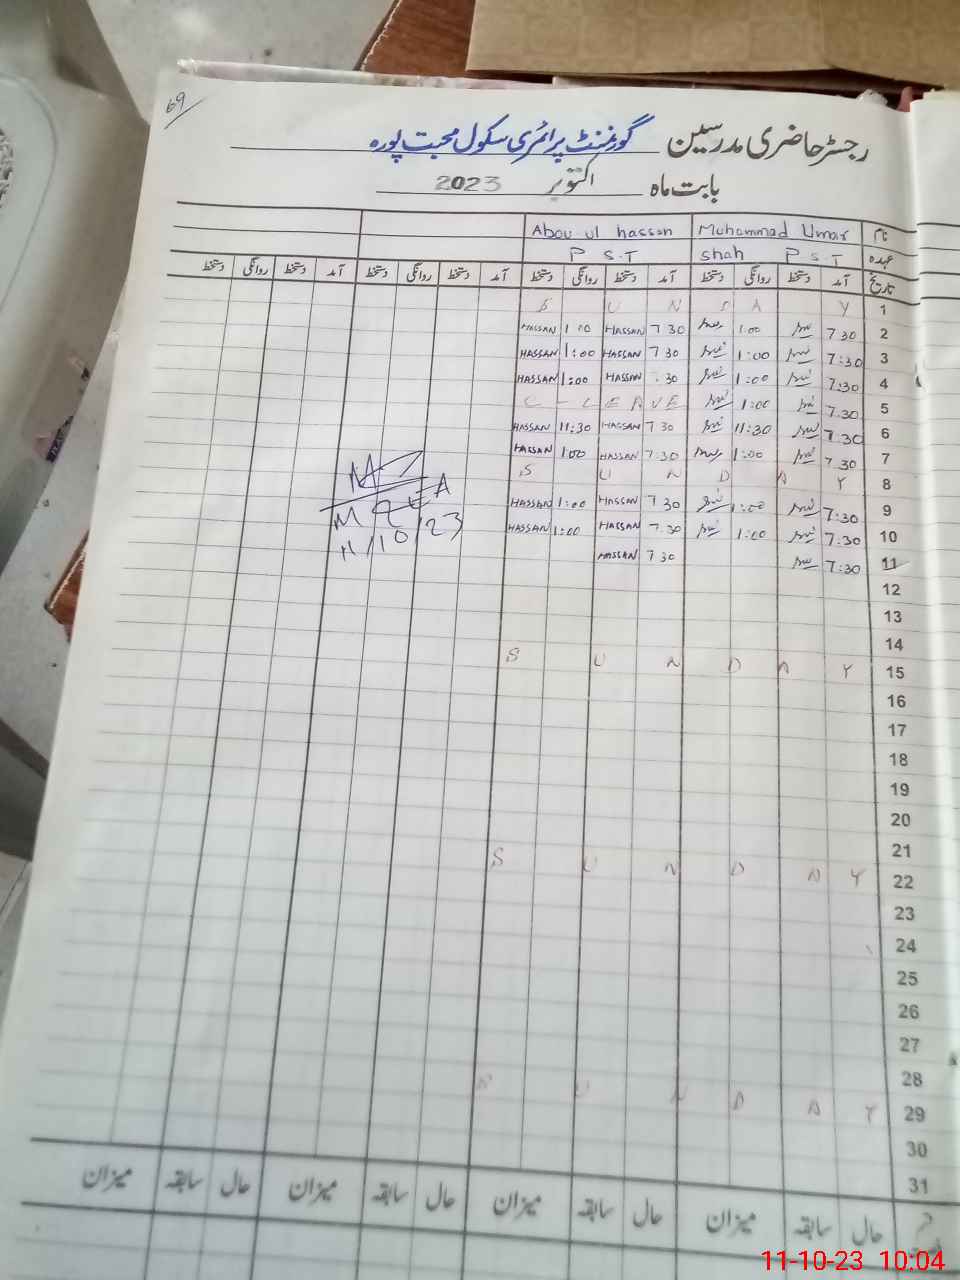 69
رجسٹر حاضری مدرسین گورنمنٹ پرائمری سکول محبت پورہ
بابت ماہ اکتوبر 2023
نام Muhammad Umar Abou ul hassan
عہدہ shah P S.T P S.T
تاریخ آمد دستخط روانگی دستخط آمد دستخط روانگی دستخط آمد دستخط روانگی دستخط آمد دستخط روانگی دستخط
1 S U N D A Y
2 7 30 1:00 7 30 HASSAN 1 00 HASSAN
3 7:30 1:00 7 30 HASSAN 1:00 HASSAN
4 7:30 1:00 . 30 HASSAN 1:00 HASSAN
5 7.30 1:00 C - LEAVE
6 7.30 11:30 7 30 HASSAN 11:30 HASSAN
7 7 30 1:00 7:30 HASSAN 1:00 HASSAN
8 S U N D A Y
9 7:30 1:00 7 30 HASSAN 1:00 HASSAN
10 7:30 1:00 7.30 HASSAN 1:00 HASSAN
11 7:30 7 30 HASSAN
M EA
11/10/23
12
13
14
15 S U N D A Y
16
17
18
19
20
21
22 S U N D A Y
23
24
25
26
27
28
29 S U N D A Y
30
31
حال سابقہ میزان حال سابقہ میزان حال سابقہ میزان حال سابقہ میزان
11-10-23 10:04